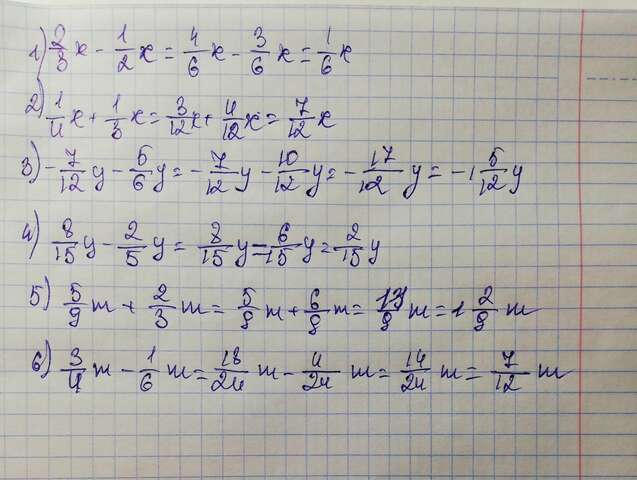 1) 2/3 x - 1/2 x = 4/6 x - 3/6 x = 1/6 x
2) 1/4 x + 1/3 x = 3/12 x + 4/12 x = 7/12 x
3) - 7/12 y - 5/6 y = - 7/12 y - 10/12 y = - 17/12 y = - 1 5/12 y
4) 8/15 y - 2/5 y = 8/15 y - 6/15 y = 2/15 y
5) 5/9 m + 2/3 m = 5/9 m + 6/9 m = 11/9 m = 1 2/9 m
6) 3/4 m - 1/6 m = 18/24 m - 4/24 m = 14/24 m = 7/12 m